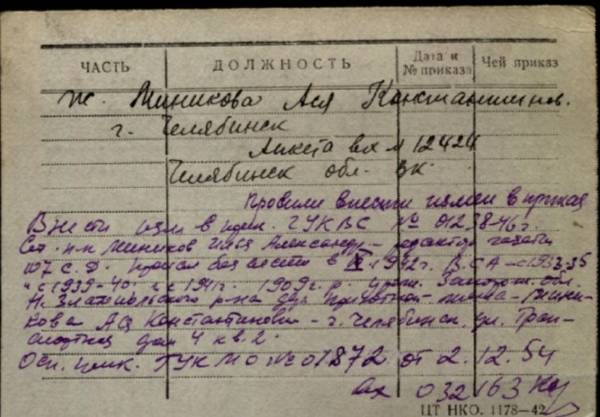 ЧАСТЬ ДОЛЖНОСТЬ Дата и № приказа Чей приказ
ж. Миникова Ася Константинов.
г. Челябинск
Анкета вх № 12424
Челябинск обл. ВК.
Просили внести измен в приказ
Внести изм в прик. ГУКВС № 01238-46 г.
Ст. п-к Миников Александр – редактор газеты
107 С.Д. пропал без вести в 1942 г. В СА – с 1933-35
и с 1939-40 г. и с 1941 г. 1909 г. р. урож. Запорож. обл.
Н. Златопольского р-на жена – Мини-
кова Ася Константинов – г. Челябинск. ул. Тран-
спортная дом 4 кв. 2.
Осн. прик. ГУК МО № 01872 от 2.12.54
вх 032163
ЦТ НКО. 1178-42